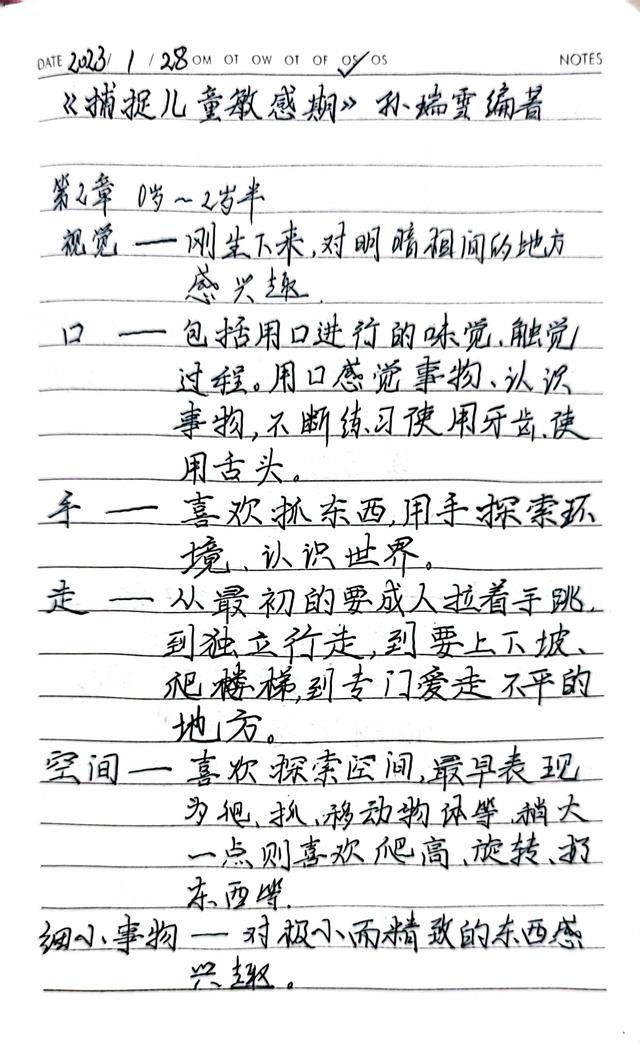 DATE 2023/ 1 /28 OM OT OW OT OF OS OS NOTES
《捕捉儿童敏感期》孙瑞雪编著
第2章 0岁~2岁半
视觉 — 刚生下来,对明暗相间的地方
感兴趣.
口 — 包括用口进行的味觉、触觉
过程。用口感觉事物、认识
事物,不断练习使用牙齿、使
用舌头。
手 — 喜欢抓东西,用手探索环
境、认识世界。
走 — 从最初的要成人拉着手跳,
到独立行走,到要上下坡、
爬楼梯,到专门爱走不平的
地方。
空间 — 喜欢探索空间,最早表现
为爬、抓、移动物体等,稍大
一点则喜欢爬高、旋转、扔
东西等.
细小事物 — 对极小而精致的东西感
兴趣。